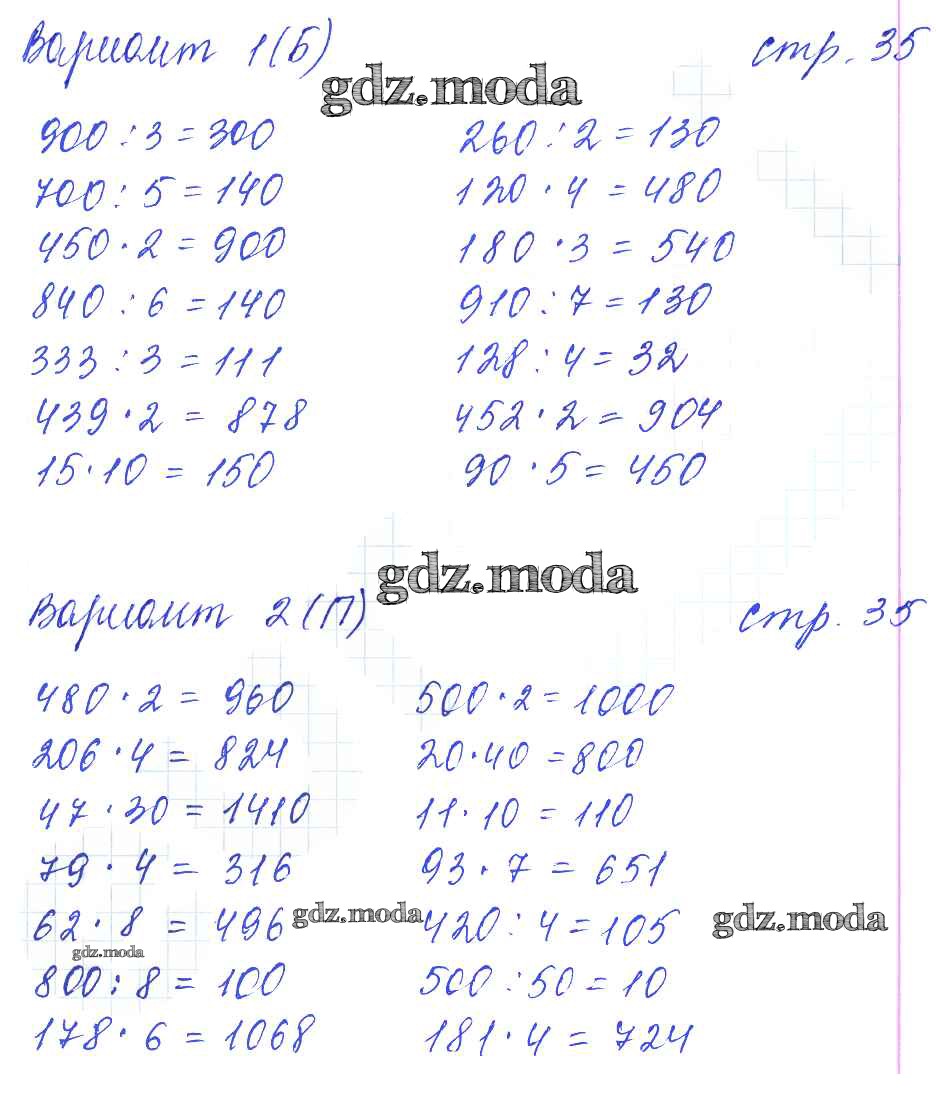 Вариант 1(Б) стр. 35
gdz.moda
900 : 3 = 300 260 : 2 = 130
700 : 5 = 140 120 · 4 = 480
450 · 2 = 900 180 · 3 = 540
840 : 6 = 140 910 : 7 = 130
333 : 3 = 111 128 : 4 = 32
439 · 2 = 878 452 · 2 = 904
15 · 10 = 150 90 · 5 = 450
gdz.moda
Вариант 2(П) стр. 35
480 · 2 = 960 500 · 2 = 1000
206 · 4 = 824 20 · 40 = 800
47 · 30 = 1410 11 · 10 = 110
79 · 4 = 316 93 · 7 = 651
62 · 8 = 496 gdz.moda 420 : 4 = 105 gdz.moda
gdz.moda
800 : 8 = 100 500 : 50 = 10
178 · 6 = 1068 181 · 4 = 724